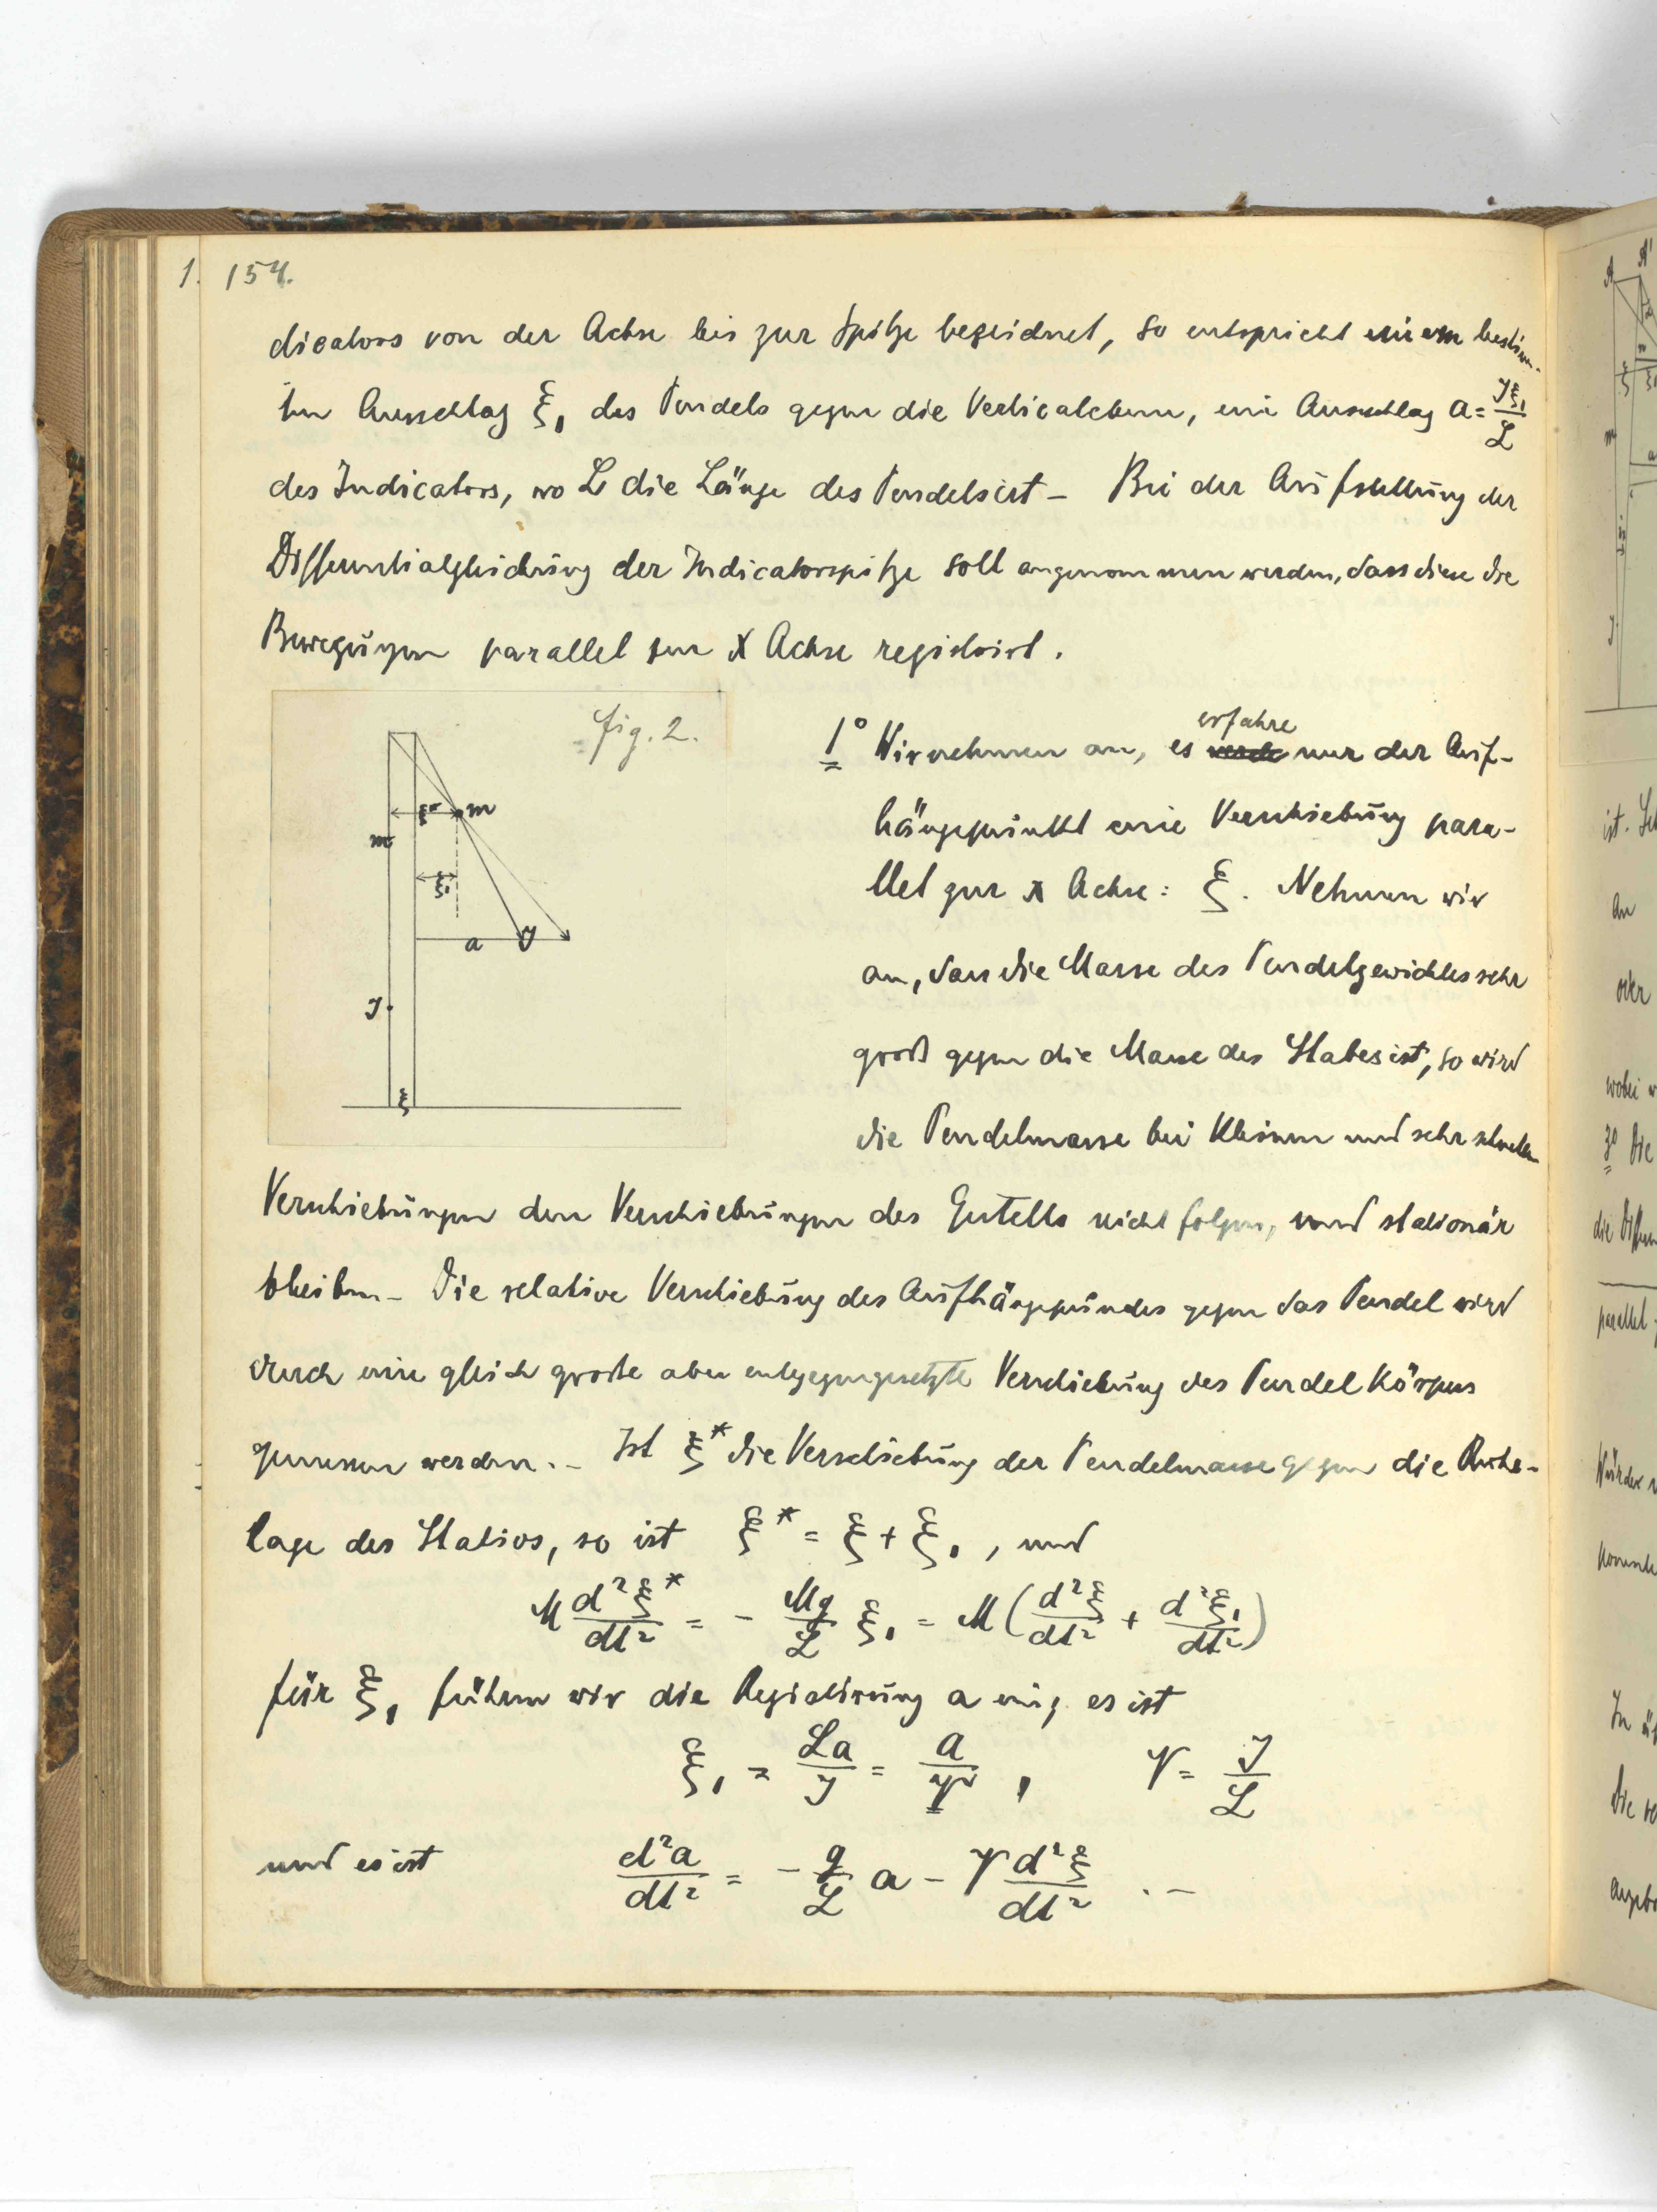 1. 154.
dicators von der Achse bis zur Spitze bezeichnet, so entspricht einem bestim-
ten Ausschlag ξ₁ des Pendels gegen die Verticalebene, ein Ausschlag a = Jξ₁/L
des Indicators, wo L die Länge des Pendels ist – Bei der Aufstellung der
Differentialgleichung der Indicatorspitze soll angenommen werden, dass diese die
Bewegungen parallel zur X Achse registrirt.
fig. 2.
ξ* m
m
ξ₁
a J
J
ξ
1° Wir nehmen an, es erfahre nur der Auf-
hängepunkt eine Verschiebung para-
llel zur x Achse: ξ. Nehmen wir
an, dass die Masse des Pendelgewichtes sehr
groß gegen die Masse des Stabes ist, so wird
die Pendelmasse bei kleinen und sehr schnellen
Verschiebungen den Verschiebungen des Gestells nicht folgen, und stationär
bleiben – Die relative Verschiebung des Aufhängepunctes gegen das Pendel wird
durch eine gleich große aber entgegengesetzte Verschiebung des Pendelkörpers
gemessen werden. – Ist ξ* die Verschiebung der Pendelmasse gegen die Ruhe-
lage des Stativs, so ist ξ* = ξ + ξ₁, und
M d²ξ*/dt² = - Mg/L ξ₁ = M(d²ξ/dt² + d²ξ₁/dt²)
für ξ₁ führen wir die Registrirung a ein; es ist
ξ₁ = La/J = a/V , V = J/L
und es ist d²a/dt² = - g/L a - V d²ξ/dt² . –
A A'
m
J
ist.
An
oder
wobei
3° Die
die
parallel
Würde
In
Die